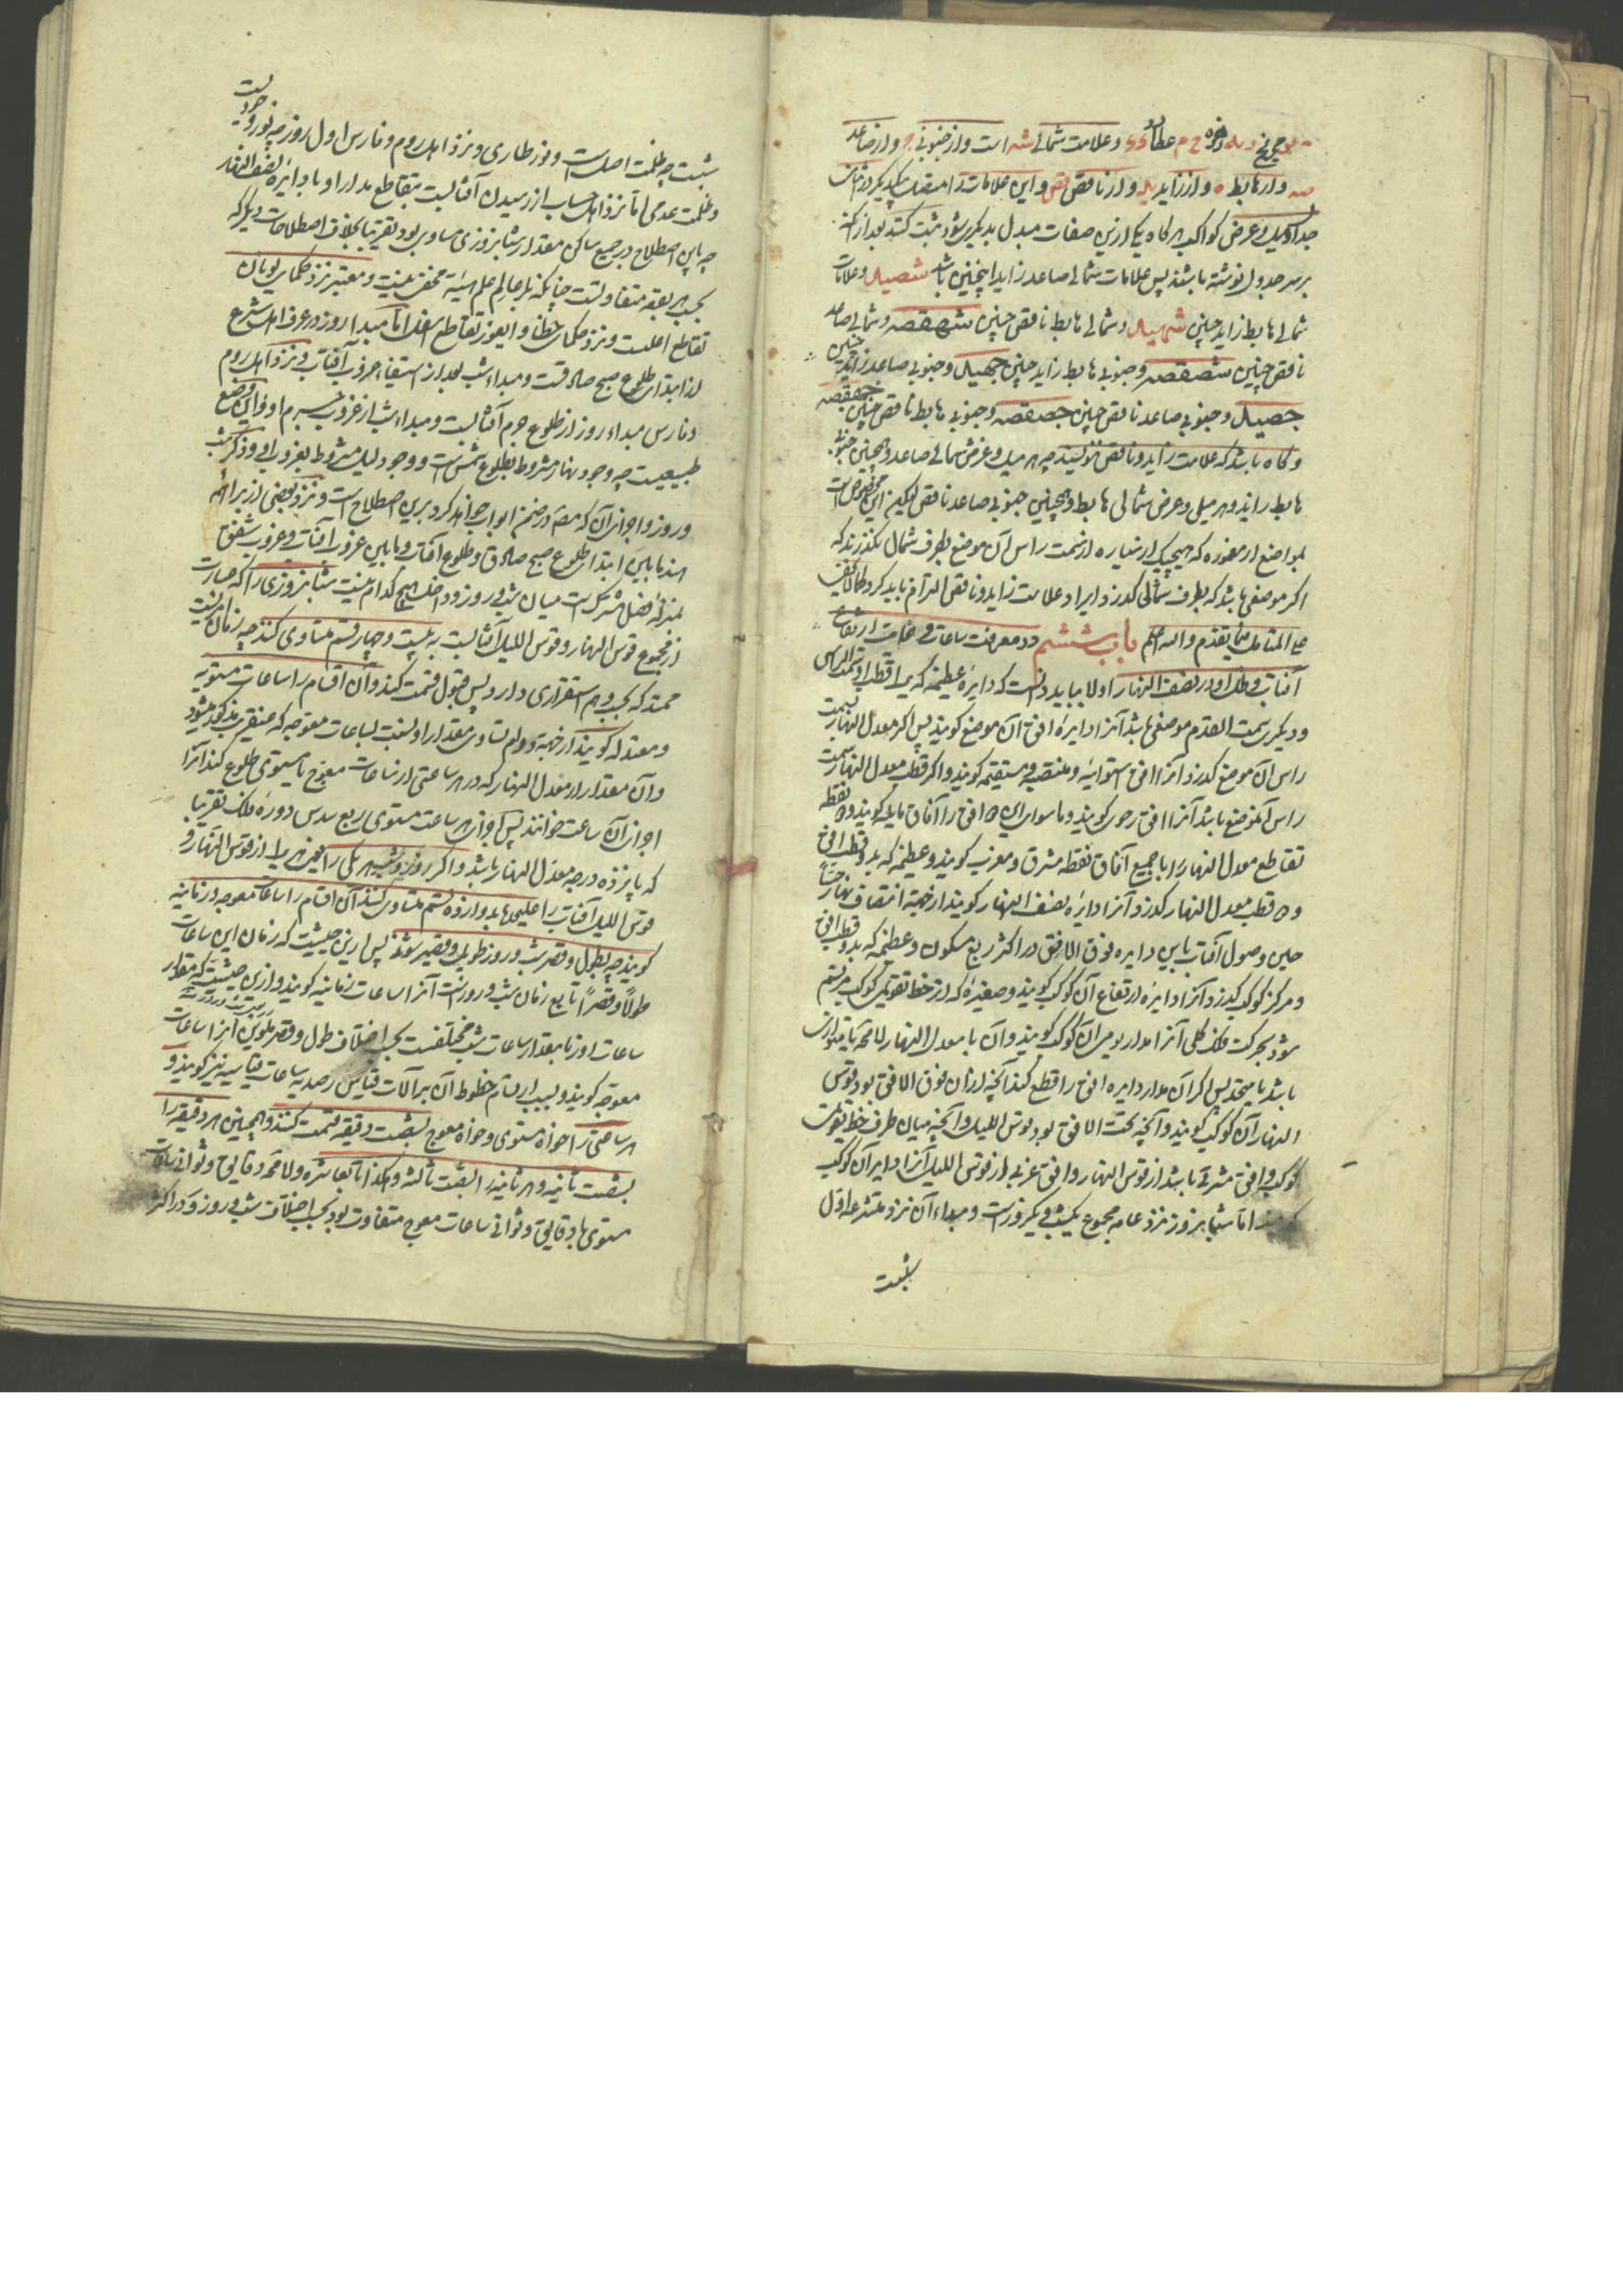 و علامت شمالی شه است و از جنوبی و از صاعد
و از هابط ه و از زاید ید و از ناقص قص و این علامات را
جداول میل و عرض کواکب هر کاه یکی ازین صفات مبدل بدیکری شود ثبت کنند بعد از آنکه
بر سر جدول نوشته باشند پس علامات شمالی صاعد زاید اینچنین باشد شصید و علامات
شمالی هابط زاید چنین شهید و شمالی هابط ناقص چنین شهقص و شمالی صاعد
ناقص چنین شصقص و جنوبی هابط زاید چنین جهید و جنوبی صاعد زاید چنین
جصید و جنوبی صاعد ناقص چنین جصقص و جنوبی هابط ناقص چنین جهقص
و کاه باشد که علامت زاید و ناقص ننویسند چه هر میل و عرض شمالی صاعد و همچنین جنوبی
هابط زایدند و هر میل و عرض شمالی هابط و همچنین جنوبی صاعد ناقص لیکن این مخصوص است
بمواضع از معموره که هیچیک از سیاره از سمت راس آن موضع بطرف شمال نکذرند که
اکر موضعی باشد که بطرف شمالی کذرد ایراد علامت زاید و ناقص التزام باید کرد کما لا یخفی
علی المتامل فیما تقدم والله اعلم باب ششم در معرفت ساعات و غایت ارتفاع
آفتاب و ظل او در نصف النهار اولا بباید دانست که دایره عظیمه که یک قطب او سمت الراس
و دیکری سمت القدم موضعی باشد آنرا دایره افق آن موضع کویند پس اکر معدل النهار بسمت
راس آن موضع کذرد آنرا افق استوائیه و منتصبه و مستقیمه کویند و اکر قطب معدل النهار بسمت
راس آنموضع باشد آنرا افق رحوی کویند و ما سوای این دو افق را آفاق مایله کویند و دو نقطه
تقاطع معدل النهار را با جمیع آفاق نقطه مشرق و مغرب کویند و عظیمه که بدو قطب افق
و دو قطب معدل النهار کذرد آنرا دایره نصف النهار کویند از جهة انتصاف نهار حسا
حین وصول آفتاب باین دایره فوق الافق در اکثر ربع مسکون و عظیمه که بدو قطب افق
و مرکز کوکب کذرد آنرا دایره ارتفاع آن کوکب کویند و صغیره که از خط تقویمی کوکب مرتسم
شود بحرکت فلک کلی آنرا مدار یومی آن کوکب کویند و آن با معدل النهار لا محه یا متوازی
باشد یا متحد پس اکر آن مدار دایره افق را قطع کند آنچه از آن فوق الافق بود قوس
النهار آن کوکب کویند و آنچه تحت الافق بود قوس اللیل و آنچه میان طرف خط تقویمی
کوکب و افق مشرقی باشد از قوس النهار و افق غربی از قوس اللیل آنرا دایر آن کوکب
اما شبانروز نزد عامه مجموع یکشب و یکروز است و مبداء آن نزد متشرعه اول
شبست
شبست چه ظلمت اصلست و نور طاری و نزد اهل روم و فارس اول روز چه نور وجودیست
و ظلمت عدمی اما نزد اهل حساب از رسیدن آفتابست بتقاطع مدار او با دایره نصف النهار
چه باین اصطلاح در جمیع مساکن مقدار شبانروزی مساوی بود تقریبا بخلاف اصطلاحات دیکر که
بحسب هر بقعه متفاوتست چنانکه بر عالم علم هیئة مخفی نیست و معتبر نزد حکمای یونان
تقاطع اعلیست و نزد حکمای خطا و ایغور تقاطع اسفل اما مبدأ روز در عرف اهل شرع
از ابتدای طلوع صبح صادقست و مبداء شب بعد از استیفاء غروب آفتاب و نزد اهل روم
و فارس مبداء روز از طلوع جرم آفتابست و مبداء شب از غروب جرم او و این وضع
طبیعیست چه وجود نهار مشروط بطلوع شمس است و وجود لیل مشروط بغروب او و ذکر شب
و روز و اجزای آن که من بعد در ضمن ابواب خواهد کرد برین اصطلاح است و نزد بعضی از براهمه
هند مابین ابتدای طلوع صبح صادق و طلوع آفتاب و مابین غروب آفتاب و غروب شفق
بمنزله فصل مشترکست میان شب و روز و داخل هیچ کدام نیست شبانروزی را که عبارت
از مجموع قوس النهار و قوس اللیل آفتابست به بیست و چهار قسم متساوی کنند چه زمان کمیت
ممتد که بحسب وهم استقراری دارد پس قبول قسمت کند و آن اقسام را ساعات مستویه
و معتدله کویند از جهة دوام تساوی مقدار او بنسبت بساعات معوجه که عنقریب مذکور میشود
و آن مقدار از معدل النهار که در هر ساعتی از ساعات معوج یا مستوی طلوع کند آنرا
اجزای آن ساعت خوانند پس اجزای هر ساعت مستوی ربع سدس دوره فلک تقریبا
که پانزده درجه معدل النهار باشد و اکر روزی و شبی هر یکی را یعنی هر یک از قوس النهار و
قوس اللیل آفتاب را علیحده بدوازده قسم متساوی کنند آن اقسام را ساعات معوجه و زمانیه
کویند چه بطول و قصر شب و روز طویل و قصیر شوند پس ازین حیثیت که زمان این ساعات
طولا و قصرا تابع زمان شب و روزست آنرا ساعات زمانیه کویند و ازین حیثیت که مقدار
ساعات روز با مقدار ساعات شب مختلفست بحسب اختلاف طول و قصر ملوین آنرا ساعات
معوجه کویند و بسبب ارتسام خطوط آن بر آلات قیاس رصدیه ساعات قیاسیه نیز کویند و
هر ساعتی را خواه مستوی و خواه معوج بشصت دقیقه قسمت کنند و همچنین هر دقیقه را
بشصت ثانیه و هر ثانیه را بشصت ثالثه و هکذا تا بعاشره و لا محه دقایق و ثوانی ساعات
مستوی با دقایق و ثوانی ساعات معوج متفاوت بود بحسب اختلاف شب و روز و در اکثر